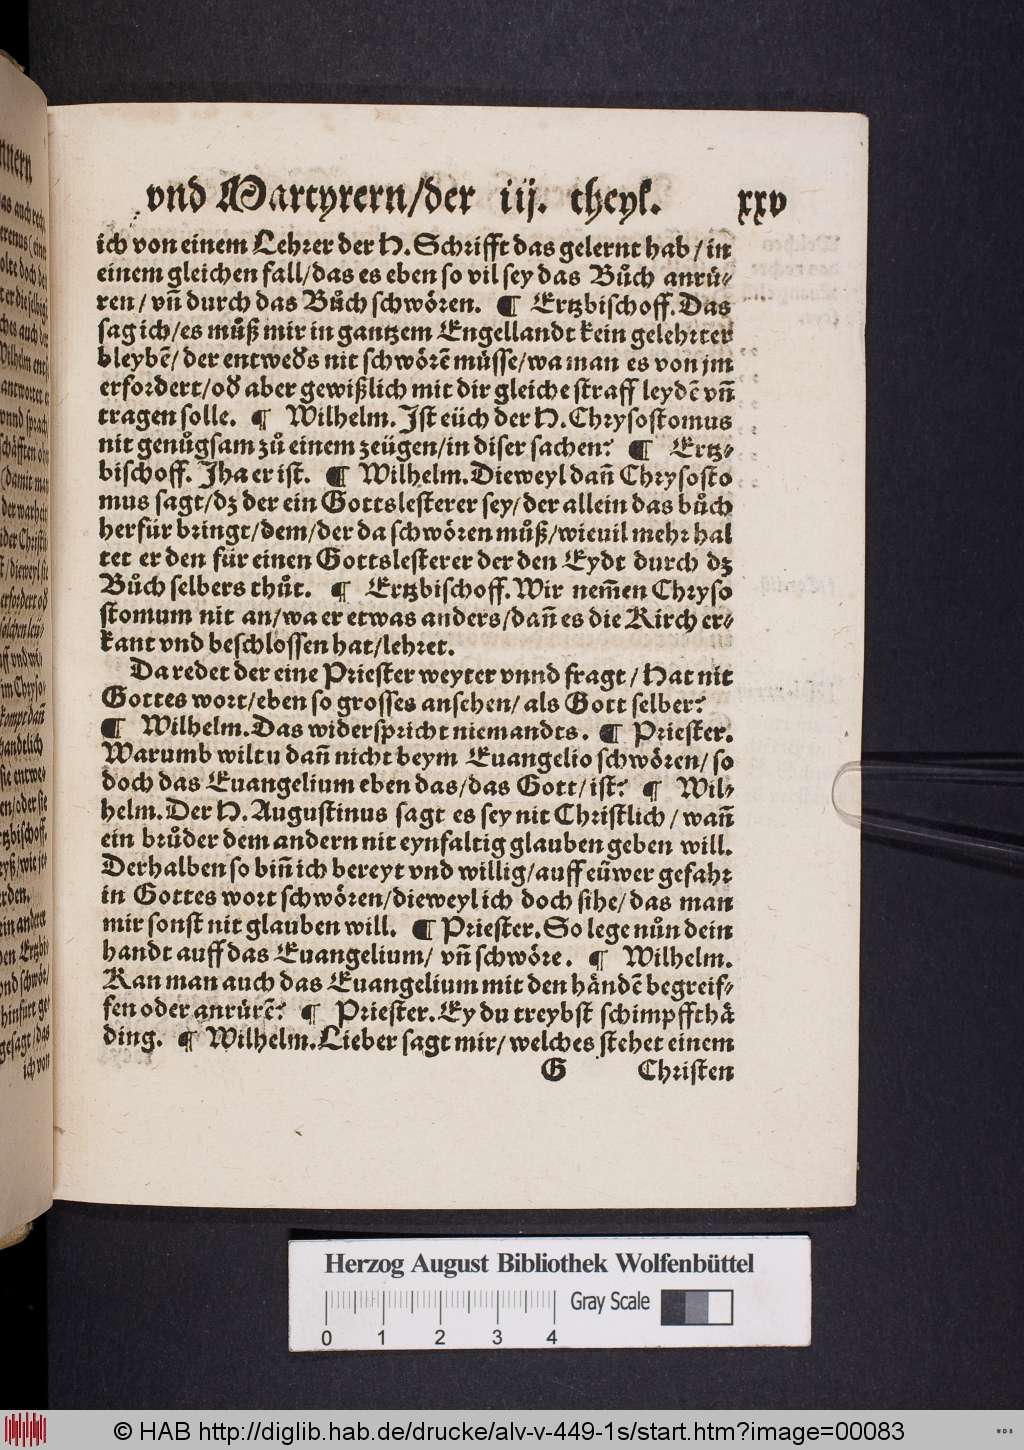 vnd Martyrern/der iij. theyl. xxv
ich von einem Lehrer der H. Schrifft das gelernt hab/in
einem gleichen fall/das es eben so vil sey das Bůch anrü-
ren/vñ durch das Bůch schwören. ¶ Ertzbischoff. Das
sag ich/es můß mir in gantzem Engellandt kein gelehrter
bleybẽ/der entweðs nit schwörẽ müsse/wa man es von jm
erfordert/oð aber gewißlich mit dir gleiche straff leydẽ vñ
tragen solle. ¶ Wilhelm. Jst eüch der H. Chrysostomus
nit genůgsam zů einem zeügen/in diser sachen? ¶ Ertz-
bischoff. Jha er ist. ¶ Wilhelm. Dieweyl dañ Chrysosto
mus sagt/dz der ein Gottslesterer sey/der allein das bůch
herfür bringt/dem/der da schwören můß/wieuil mehr hal
tet er den für einen Gottslesterer der den Eydt durch dz
Bůch selbers thůt. ¶ Ertzbischoff. Wir nem̃en Chryso
stomum nit an/wa er etwas anders/dañ es die Kirch er-
kant vnd beschlossen hat/lehret.
Da redet der eine Priester weyter vnnd fragt/Hat nit
Gottes wort/eben so grosses ansehen/als Gott selber?
¶ Wilhelm. Das widerspricht niemandts. ¶ Priester.
Warumb wiltu dañ nicht beym Euangelio schwören/so
doch das Euangelium eben das/das Gott/ist? ¶ Wil-
helm. Der H. Augustinus sagt es sey nit Christlich/wañ
ein brůder dem andern nit eynfaltig glauben geben will.
Derhalben so biñ ich bereyt vnd willig/auff eüwer gefahr
in Gottes wort schwören/dieweyl ich doch sihe/das man
mir sonst nit glauben will. ¶ Priester. So lege nůn dein
handt auff das Euangelium/vñ schwöre. ¶ Wilhelm.
Kan man auch das Euangelium mit den händẽ begreif-
fen oder anrürẽ? ¶ Priester. Ey du treybst schimpffthä
ding. ¶ Wilhelm. Lieber sagt mir/welches stehet einem
G Christen
Herzog August Bibliothek Wolfenbüttel
Gray Scale
0 1 2 3 4
© HAB http://diglib.hab.de/drucke/alv-v-449-1s/start.htm?image=00083